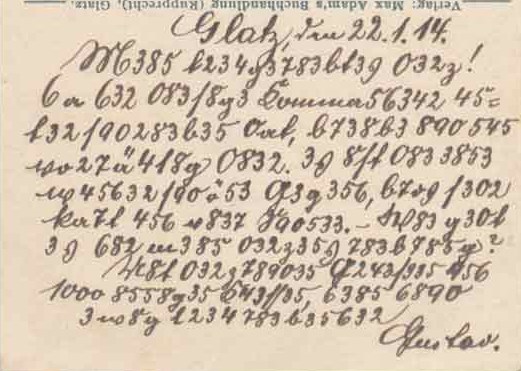 Verlag: Max Adam's Buchhandlung (Rupprecht), Glatz.
Glatz, den 22.1.14.
M385 t234g3783bt3s 032z!
6a 632 083/8g3 Komma56342 45=
t32/90283b35 0at, b738b3 890 545
vo27ä418g 0832. 3s 8/t 083 3853
w45632/90ö53 G3g356, b7os /302
ka7t 456 v837 S90533. – W83 g30t
3s 682 m385 032z35s 783b785g?
M8t 032z789035 G243//35 456
1000 8558g35 K43//35, 6385 6890
3w8g t234 783b35632
Gustav.